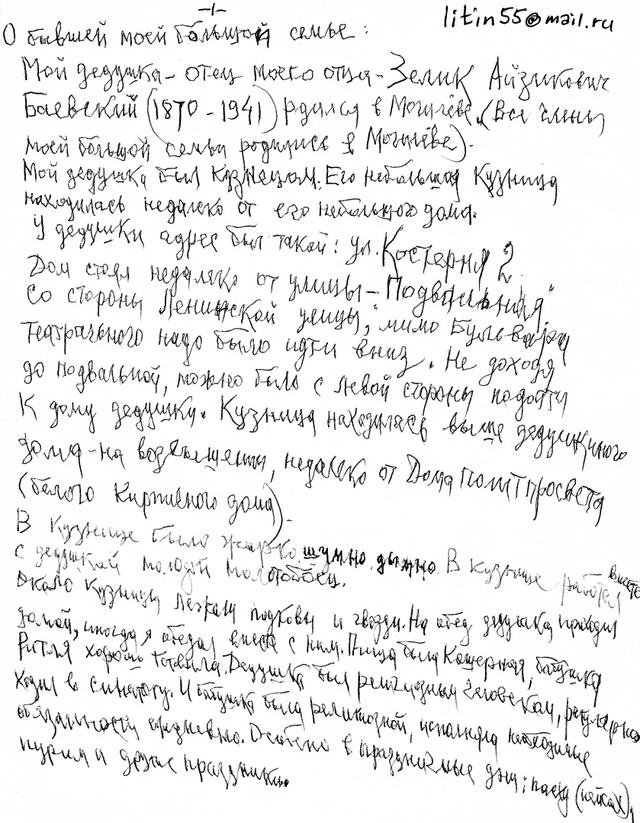 -1-
litin55@mail.ru
О бывшей моей большой семье:
Мой дедушка - отец моего отца - Зелик Айзикович
Баевский (1870 - 1941) рдился в Могилёве. (Все члены
моей большой семьи родились в Могилёве).
Мой дедушка был кузнецом. Его небольшая кузница
находилась недалеко от его небольшого дома.
У дедушки адрес был такой: ул. Костерня 2.
Дом стоял недалеко от улицы - "Подвольная"
Со стороны Ленинской улицы, мимо Бульвара
Театрального надо было идти вниз. Не доходя
до подвальной, можно было с левой стороны подойти
к дому дедушки. Кузница находилась выше дедушкиного
дома - на возвышении, недалеко от Дома политпросвета
(белого кирпичного дома).
В кузнице было жарко шумно, дымно. В кузнице работал вместе
с дедушкой молодой молотобоец.
Около кузницы лежали подковы и гвозди. На обед дедушка приходил
домой, иногда я обедал вместе с ним. Пища была кашерная, бабушка
Ритля хорошо готовила. Дедушка был религиозным человеком, регулярно
ходил в синагогу. И бабушка была религиозной, исполняла
обязанности ежедневно. Особено в праздничные дни: пасху (пейсах),
пурим и другие праздники.